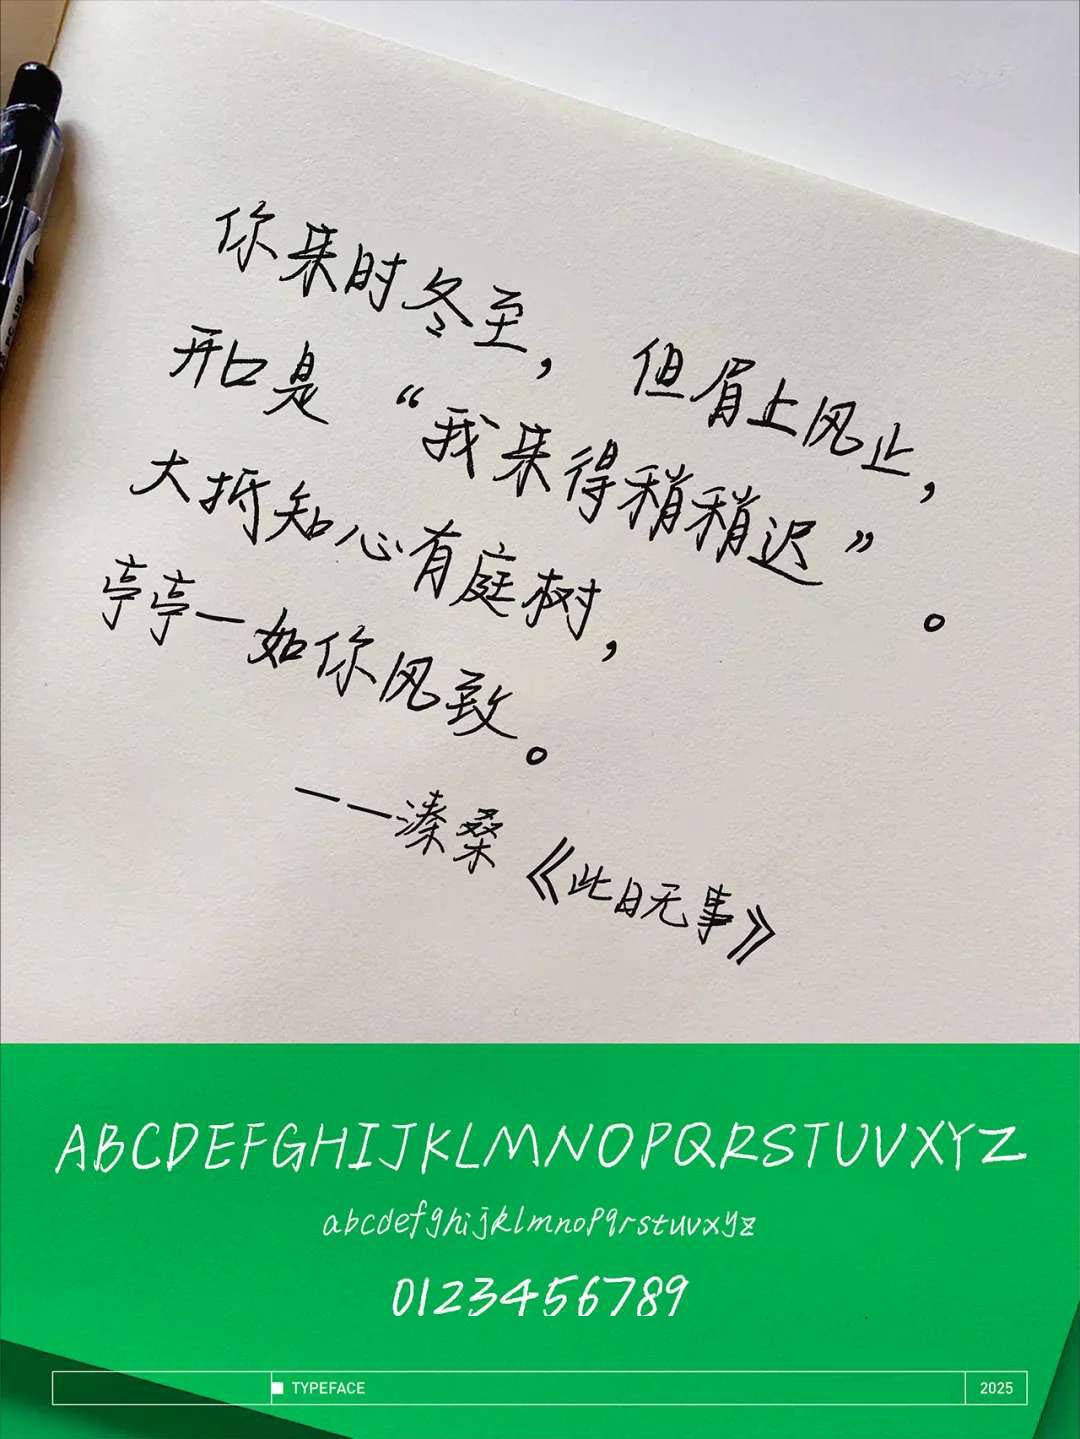 你来时冬至，但眉上风止，
开口是“我来得稍稍迟”。
大抵知心有庭树，
亭亭一如你风致。
——溱桑《此日无事》
ABCDEFGHIJKLMNOPQRSTUVXYZ
abcdefghijklmnopqrstuvxyz
0123456789
TYPEFACE
2025